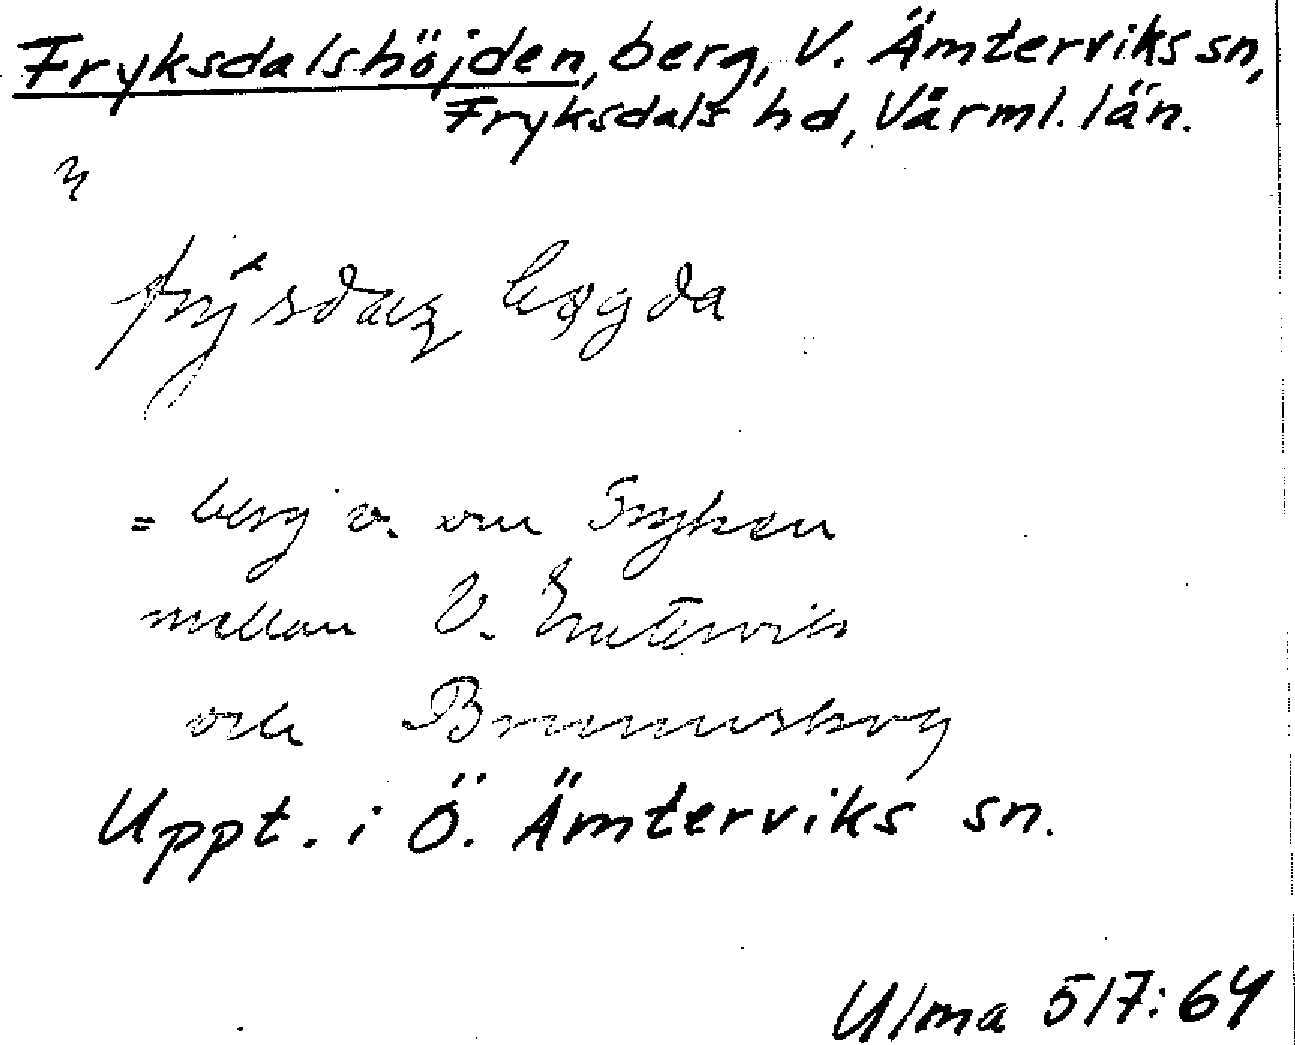 Fryksdalshöjden, berg, V. Ämterviks sn,
Fryksdals hd, Värml. län.
= berg v. om Fryken
mellan V. Emtervik
och Brunnskog
Uppt. i Ö. Ämterviks sn.
Ulma 517:64